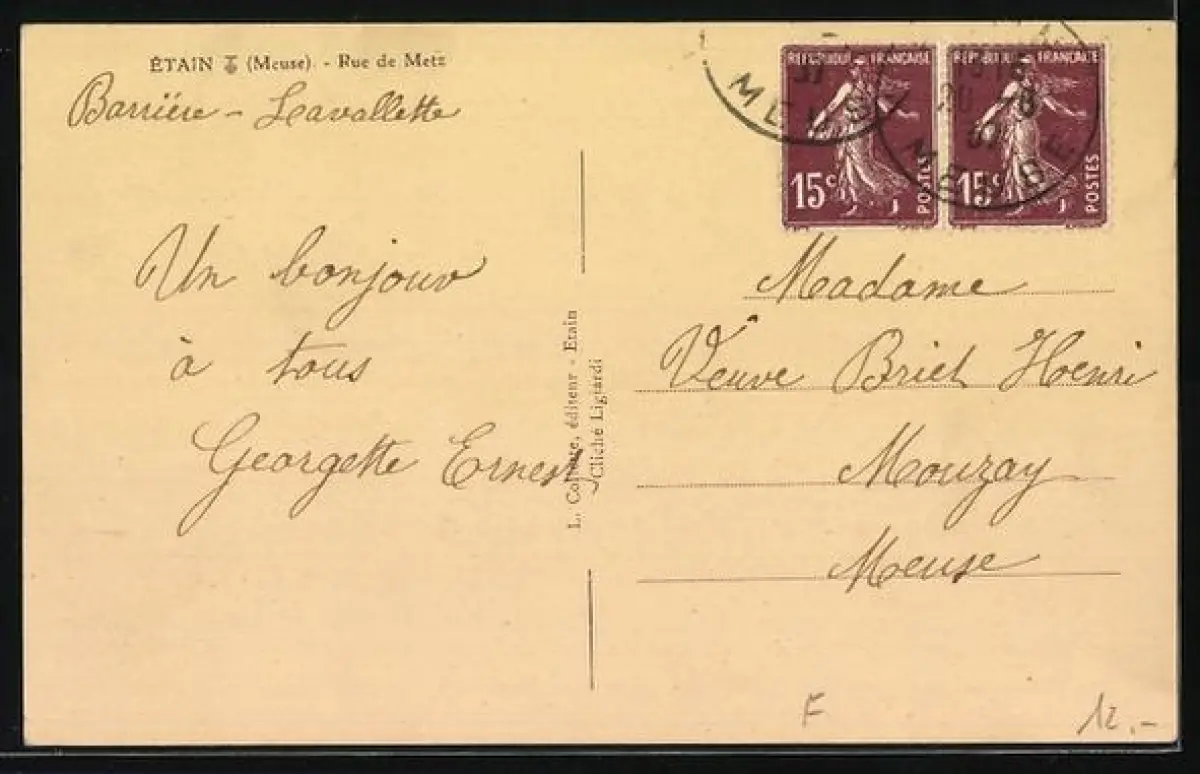 ÉTAIN (Meuse) - Rue de Metz
Barrière - Lavallette
Un bonjour
à tous
Georgette Ernest
L. éditeur - Etain
Cliché Ligiardi
REPUBLIQUE FRANÇAISE
15c POSTES
REPUBLIQUE FRANÇAISE
15c POSTES
37
MEUSE
20 - 8
37
MEUSE
Madame
Veuve Briet Henri
Mouzay
Meuse
F
12.-